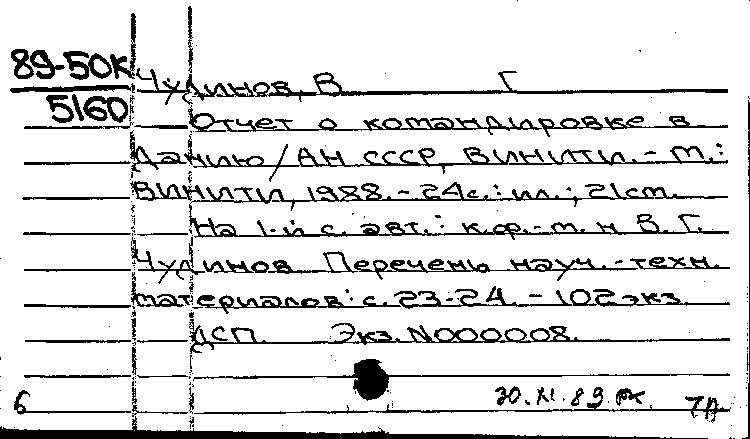 89-50К
5160
Чудинов, В Г
Отчет о командировке в
Данию / АН СССР, ВИНИТИ. - М.:
ВИНИТИ, 1988. - 24с.: ил.; 21см.
На 1-й с. авт.: к.ф.-м. н В. Г.
Чудинов Перечень науч.-техн.
материалов: с. 23-24. - 102экз.
ДСП. Экз. N000008.
6 30.XI.89